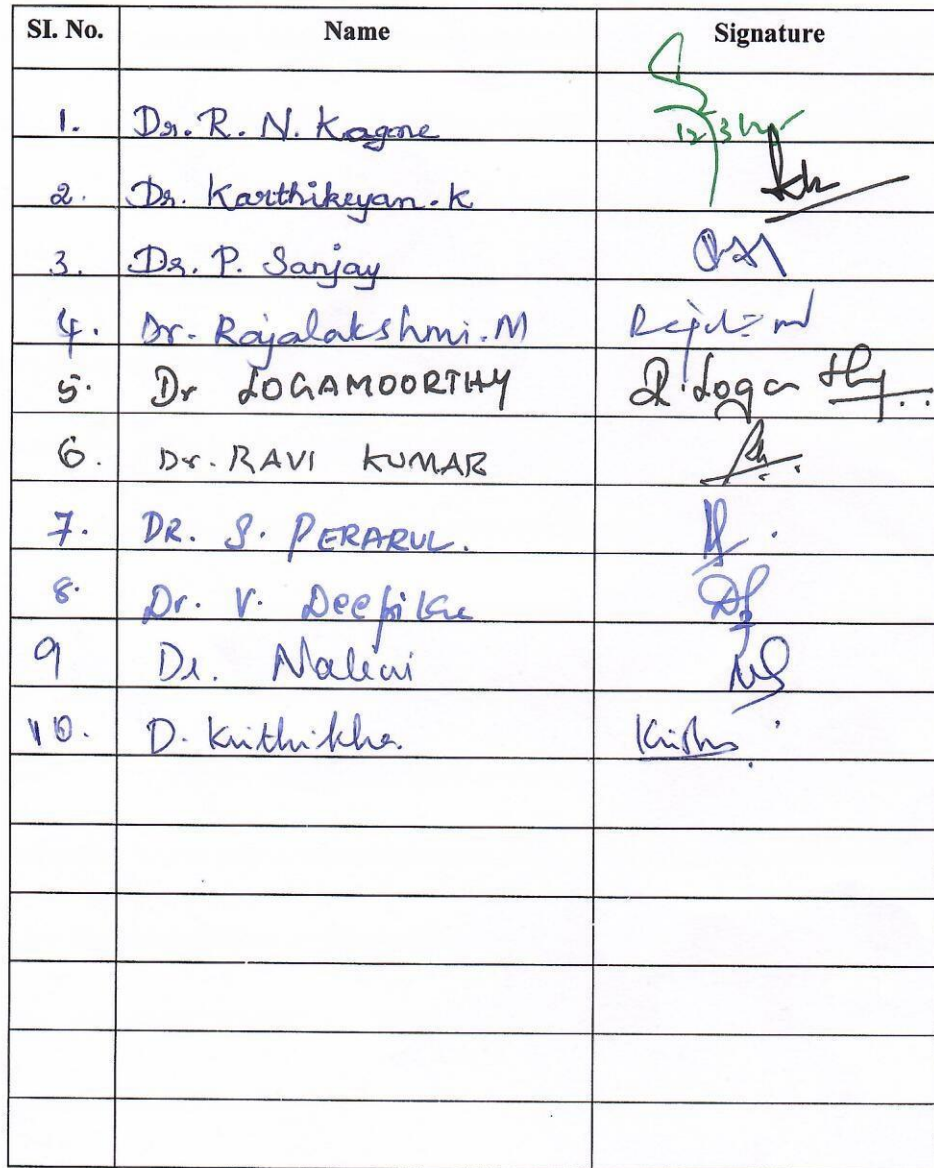 SI. No. Name Signature
1. Dr. R. N. Kagne
2. Dr. Karthikeyan. K
3. Dr. P. Sanjay
4. Dr. Rajalakshmi. M
5. Dr LOGAMOORTHY
6. Dr. RAVI KUMAR
7. DR. S. PERARUL.
8. Dr. V. Deepika
9 Dr. Nalini
10. D. Krithikha.